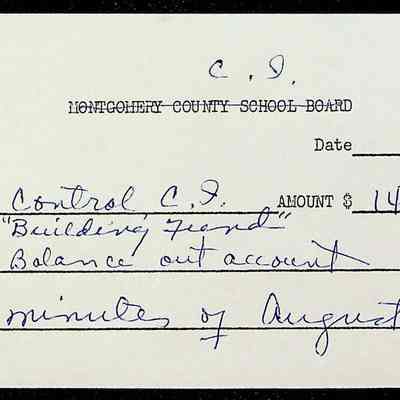 C. I.
MONTGOMERY COUNTY SCHOOL BOARD
Date
Control C.I. AMOUNT $ 14
"Building Fund"
Balance out account
minutes of August